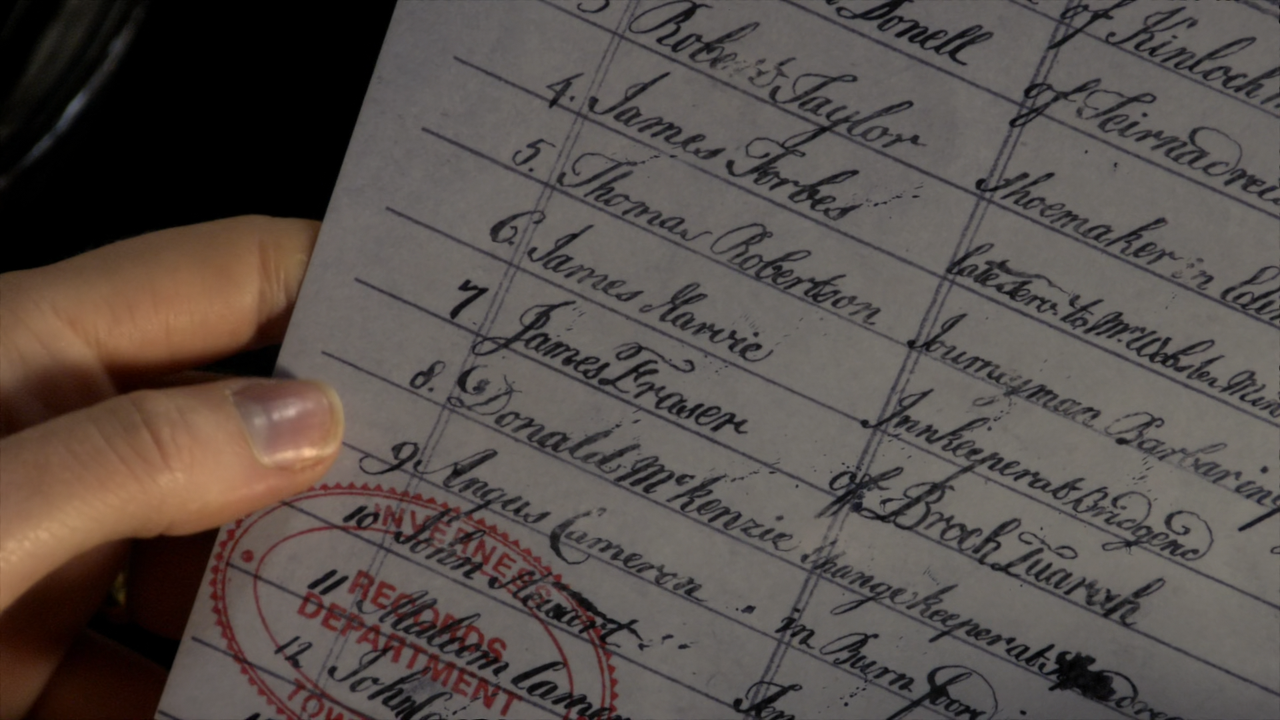 Donell of Kinloch
3 Robert Taylor of Leirnadrei
4. James Forbes shoemaker in Edin
5. Thomas Robertson late servt to Mr. Webster Min
6. James Harvie Journeyman Barbar in
7 James Fraser Innkeeper at Bridgend
8. Donald McKenzie of Broch Tuaroh
9 Angus Cameron Changekeeper at
10 John Stewart in Burn foot
11 Malcom Came
12 John
INVERNESS
RECORDS
DEPARTMENT
TOW